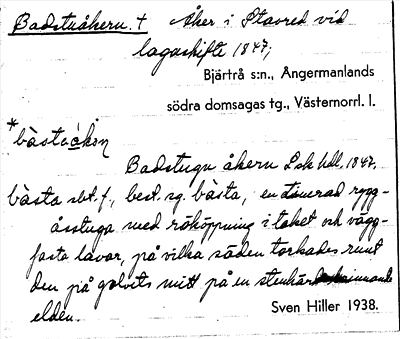 Badstuåkern. † Åker i Stavred vid
lagaskifte 1847;
Bjärtrå s:n., Ångermanlands
södra domsagas tg., Västernorrl. l.
*bàstvàkṇ
Badstugu åkern Lsk hdl. 1847.
bàsta sbt. f., best. sg. bàsta, en timrad rygg-
åsstuga med rököppning i taket och vägg-
fasta lavar, på vilka säden torkades runt
den på golvets mitt på en stenhärd brinnande
elden.
Sven Hiller 1938.